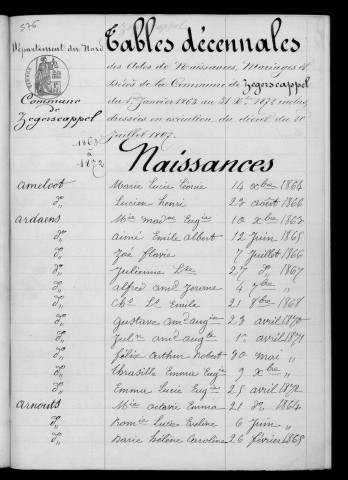 576
Département du Nord
Commune
de
Zegerscappel
1863
à
1872
Tables décennales
des Actes de Naissances, Mariages et
Décès de la Commune de Zegerscappel
du 1er Janvier 1863 au 31 Xbre 1872 inclus
dressées en exécution du décret du 20
Juillet 1807.
Naissances
Ameloot Marie Lucie Léonie 14 Xbre 1864
d° Lucien Henri 23 août 1866
Ardaens Mie Eugie 10 Xbre 1863
d° Aimé Emile Albert 12 Juin 1865
d° Zoé Flavie 7 Juillet 1866
d° Julienne 27 d° 1867
d° Alfred amd Jérome 4 "
d° Emile 21 8bre 1868
d° Gustave amd 23 avril 1870
d° amd augte avril 1871
d° Félix Arthur Robert 30 mai "
d° Emma Eugie 9 Xbre "
d° Emma Lucie Eugie 25 avril 1872
Arnouts Mie Octavie Emma 21 d° 1864
d° Romie Lucie Eveline 6 Juin "
d° Marie Hélène Caroline 26 février 1865